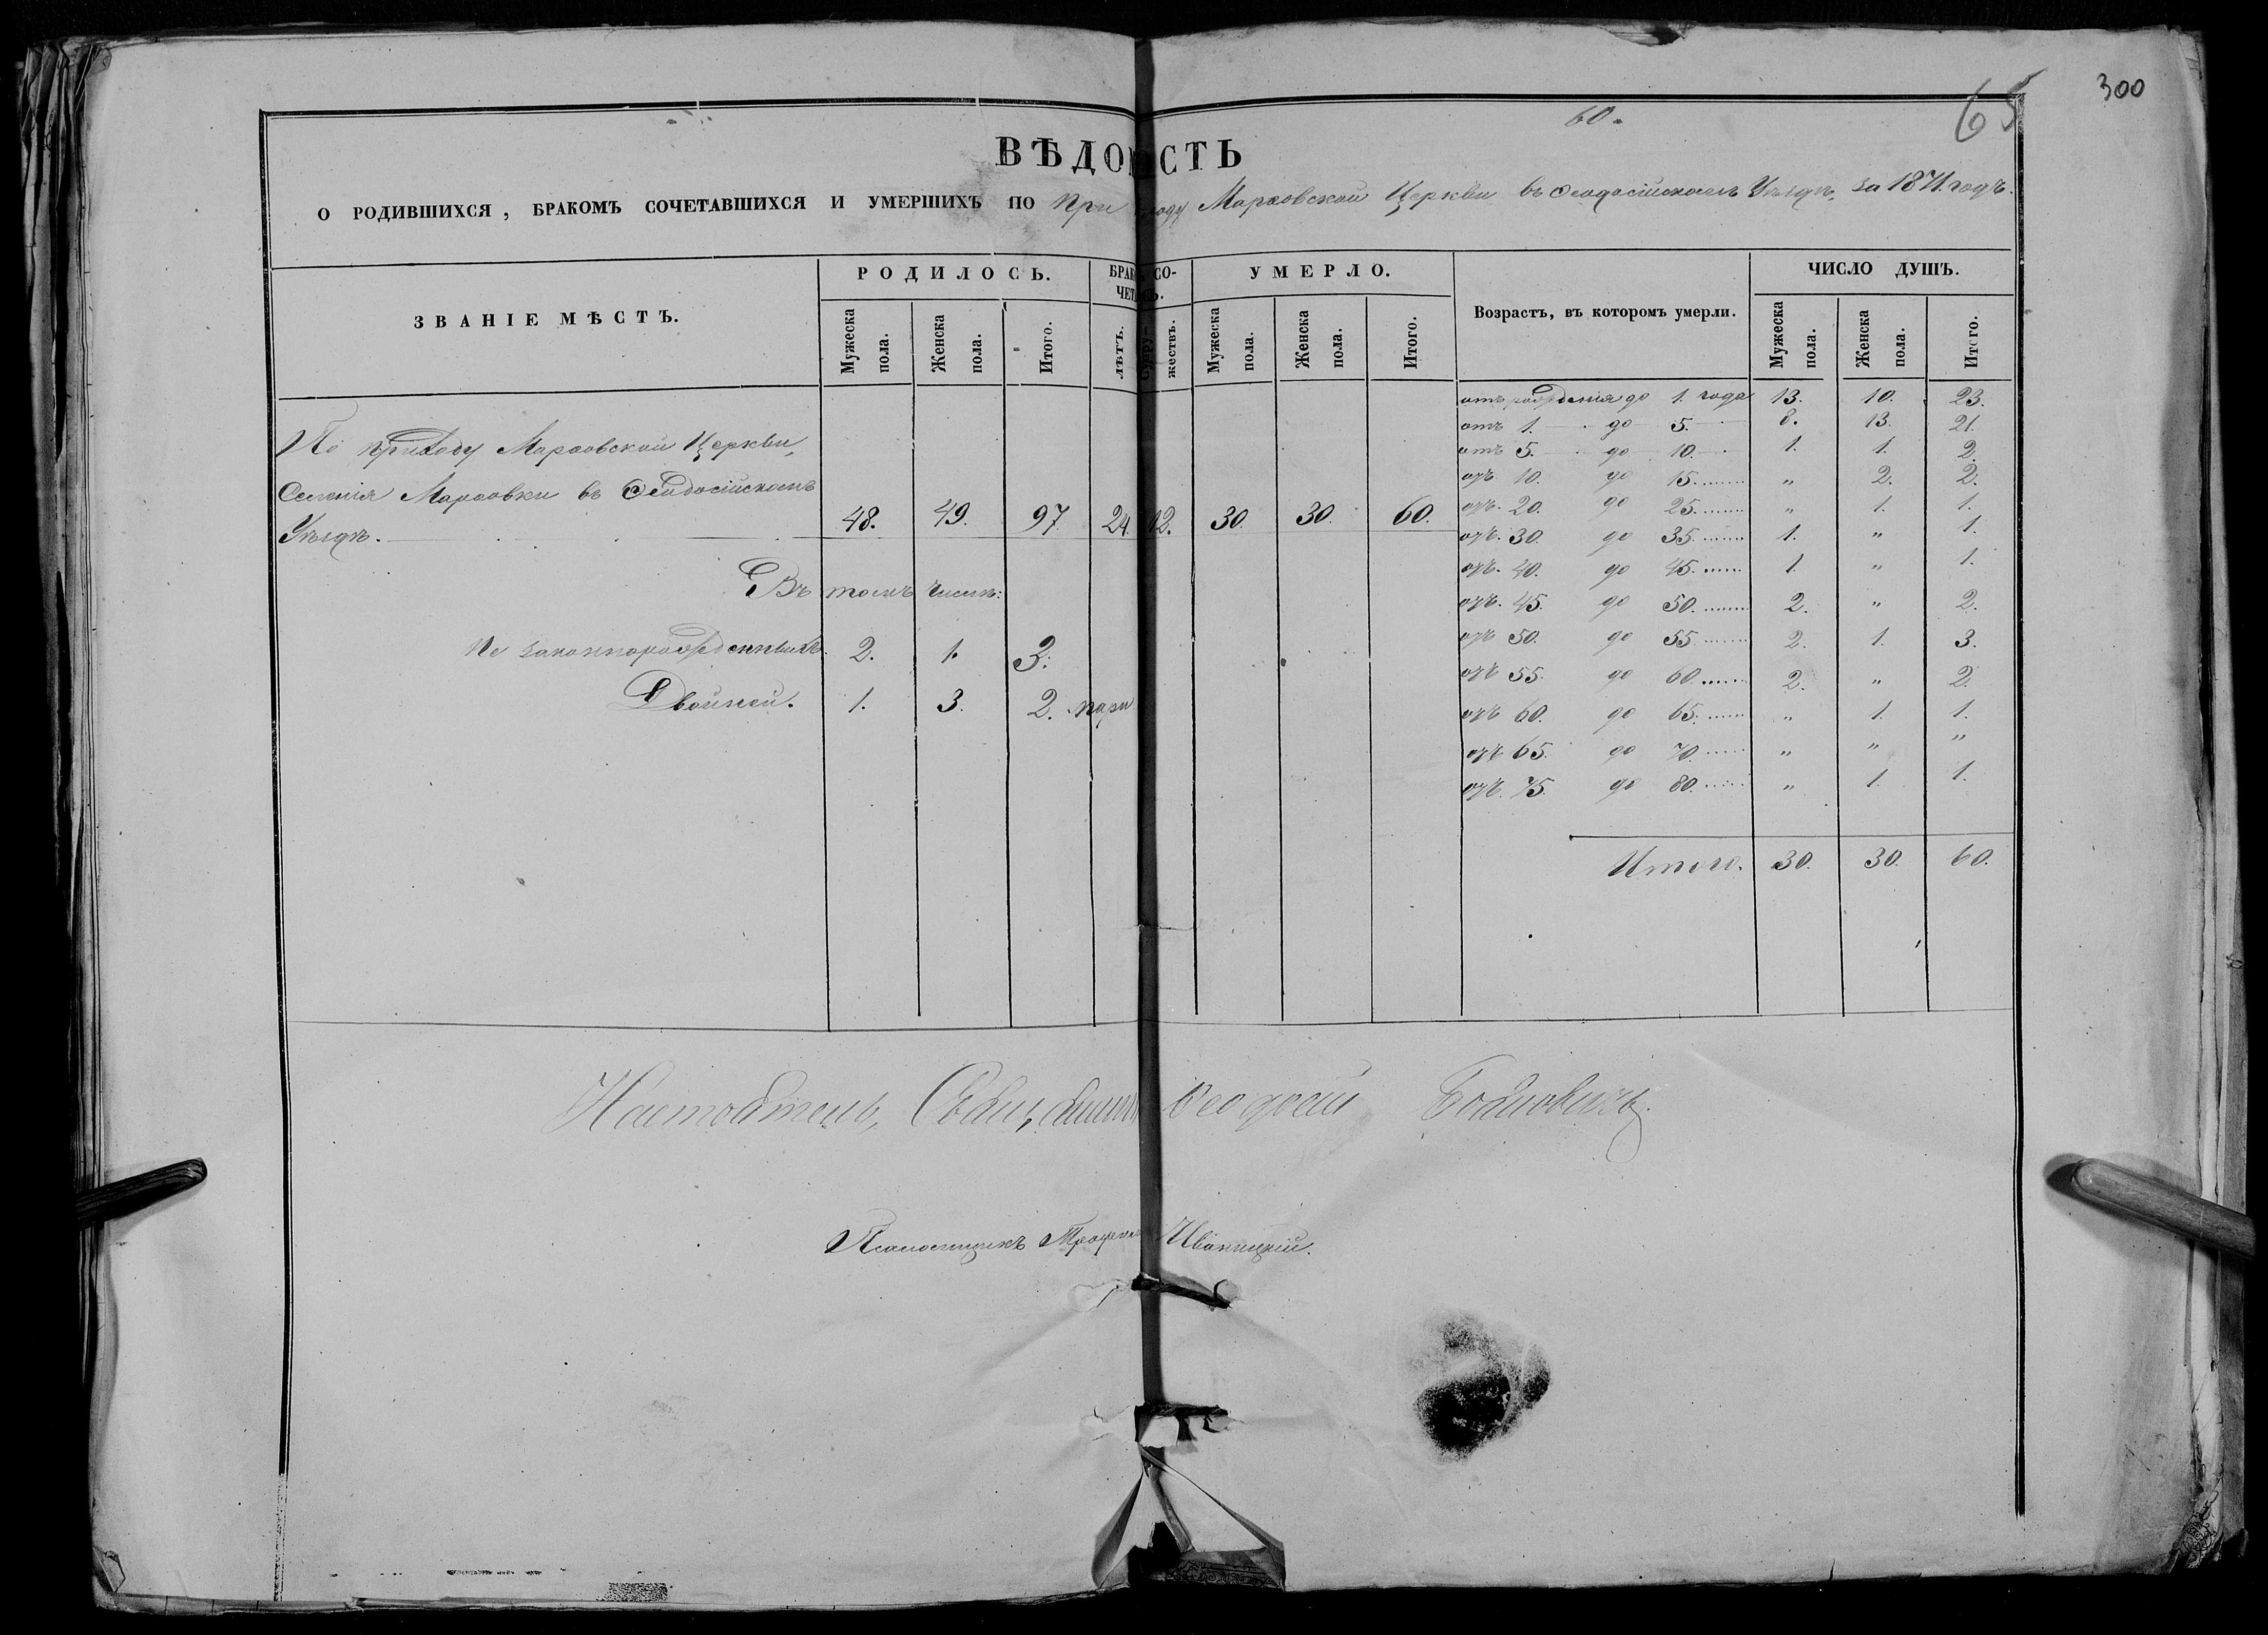 300
65
60.
ВѢДОМОСТЬ
О РОДИВШИХСЯ, БРАКОМЪ СОЧЕТАВШИХСЯ И УМЕРШИХЪ ПО приходу Марѳовской Церкви въ Ѳеодосійскомъ Уѣздѣ, за 1871 годъ.
ЗВАНІЕ МѢСТЪ.
РОДИЛОСЬ.
Мужеска пола.
Женска пола.
Итого.
БРАКОМЪ СО-
ЧЕТАЛОСЬ.
лѣтъ.
Супру-
жествъ.
УМЕРЛО.
Мужеска пола.
Женска пола.
Итого.
Возрастъ, въ которомъ умерли.
ЧИСЛО ДУШЪ.
Мужеска пола.
Женска пола.
Итого.
По приходу Марѳовской Церкви,
Селенія Марѳовки въ Ѳеодосійскомъ
Уѣздѣ. 48. 49. 97 24. 12. 30. 30. 60.
Въ томъ числѣ:
Не законнорожденныхъ. 2. 1. 3.
Двойней. 1. 3. 2. пары
отъ рожденія до 1. года 13. 10. 23.
отъ 1. до 5. 8. 13. 21.
отъ 5. до 10. 1. 1. 2.
отъ 10. до 15. " 2. 2.
отъ 20. до 25. " 1. 1.
отъ 30. до 35. 1. " 1.
отъ 40. до 45. 1. " 1.
отъ 45. до 50. 2. " 2.
отъ 50. до 55. 2. 1. 3.
отъ 55. до 60. 2. " 2.
отъ 60. до 65. " 1. 1.
отъ 65. до 70. " " "
отъ 75. до 80. " 1. 1.
Итого. 30. 30. 60.
Настоятель, Священник Ѳеодосій
Псаломщикъ Иваницкій.